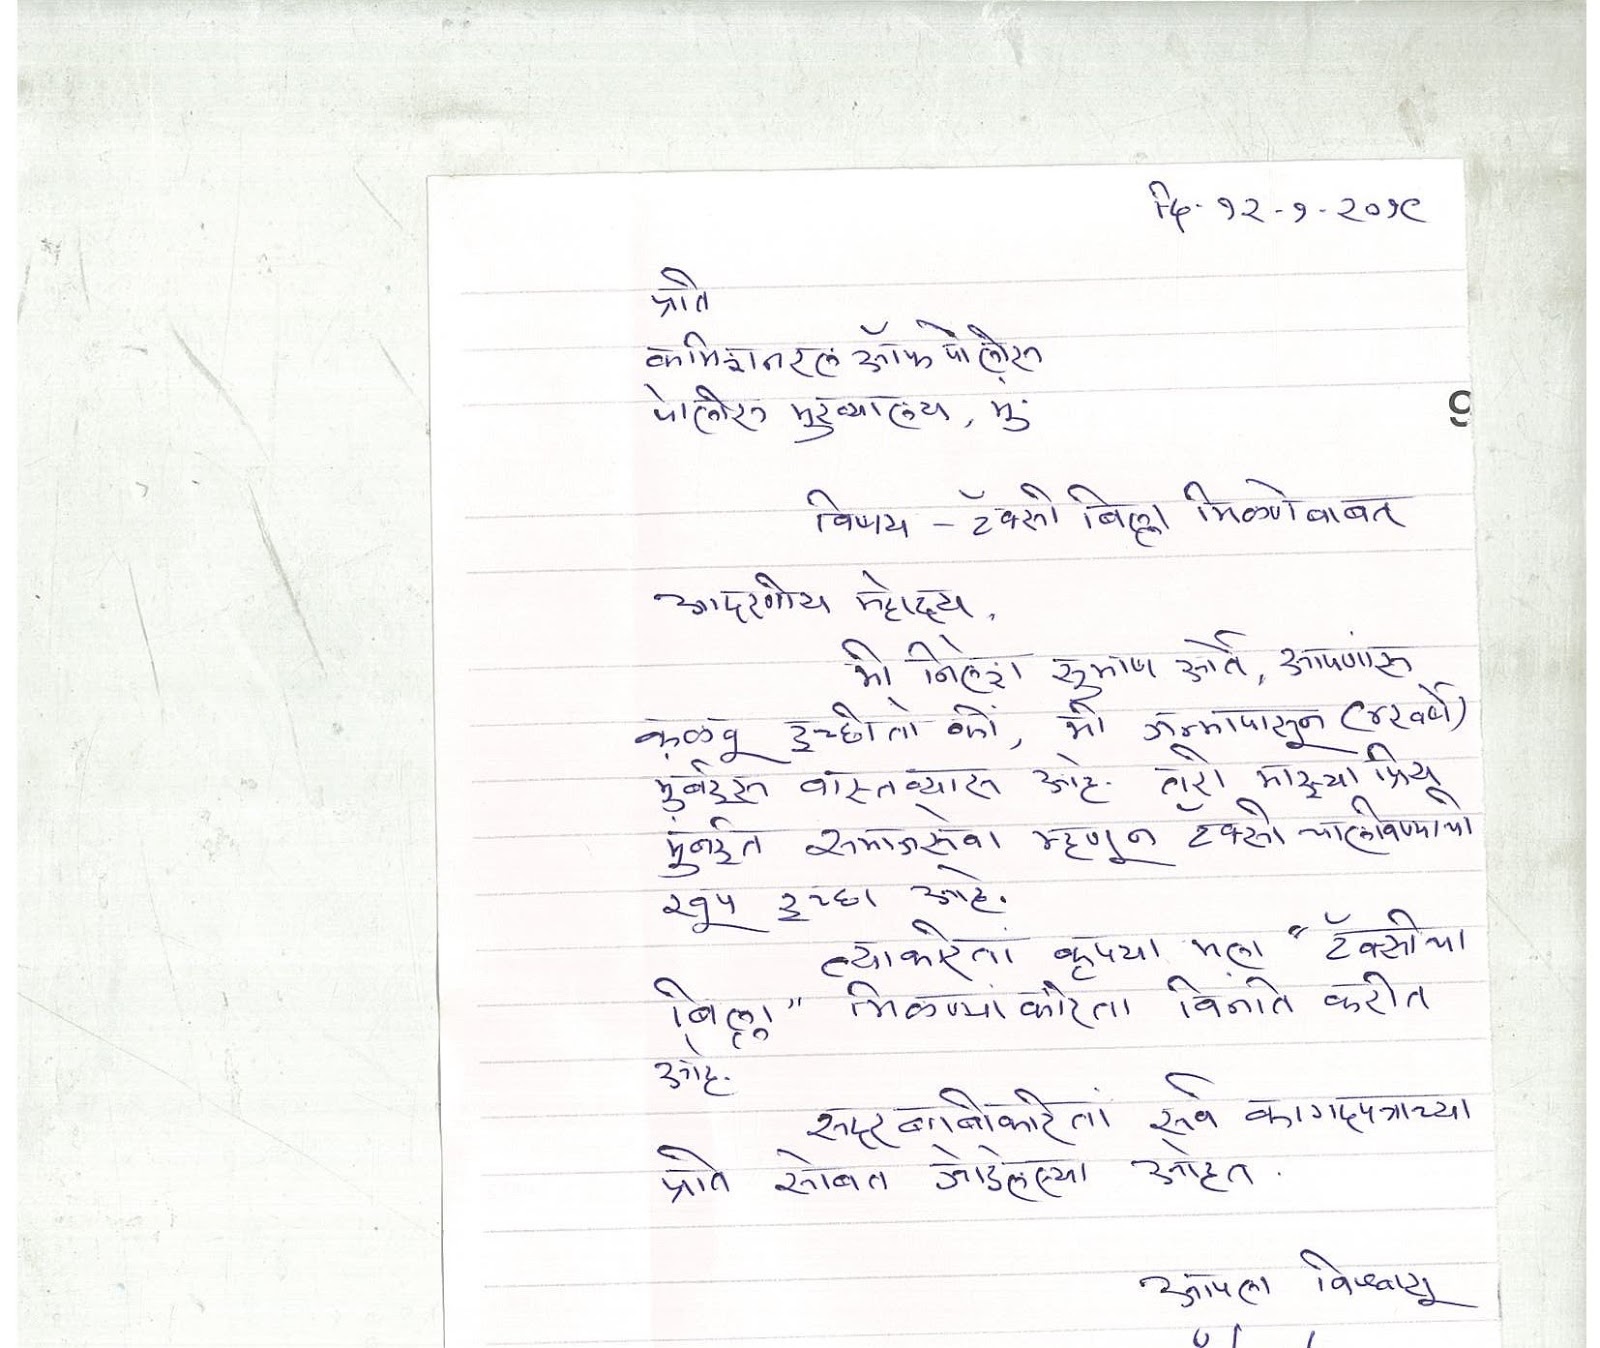 दि. १२-१-२०१८
प्रति
कमिशनरल ऑफ पोलीस
पोलीस मुख्यालय, मुं
9
विषय - टॅक्सी बिल्ला मिळणेबाबत
आदरणीय महोदय,
मी निलेश सुभाष आर्ते, आपणांस
कळवू इच्छीतो कीं, मी जन्मापासून (४२ वर्षे)
मुंबईस वास्तव्यास आहे. तरी माझ्या प्रिय
मुंबईत समाजसेवा म्हणून टॅक्सी चालविण्याची
खूप इच्छा आहे.
त्याकरितां कृपया मला "टॅक्सीचा
बिल्ला" मिळण्यांकरिता विनंति करीत
आहे.
सदर बाबीकरितां सर्व कागदपत्राच्या
प्रति सोबत जोडलेल्या आहेत.
आपला विश्वासू